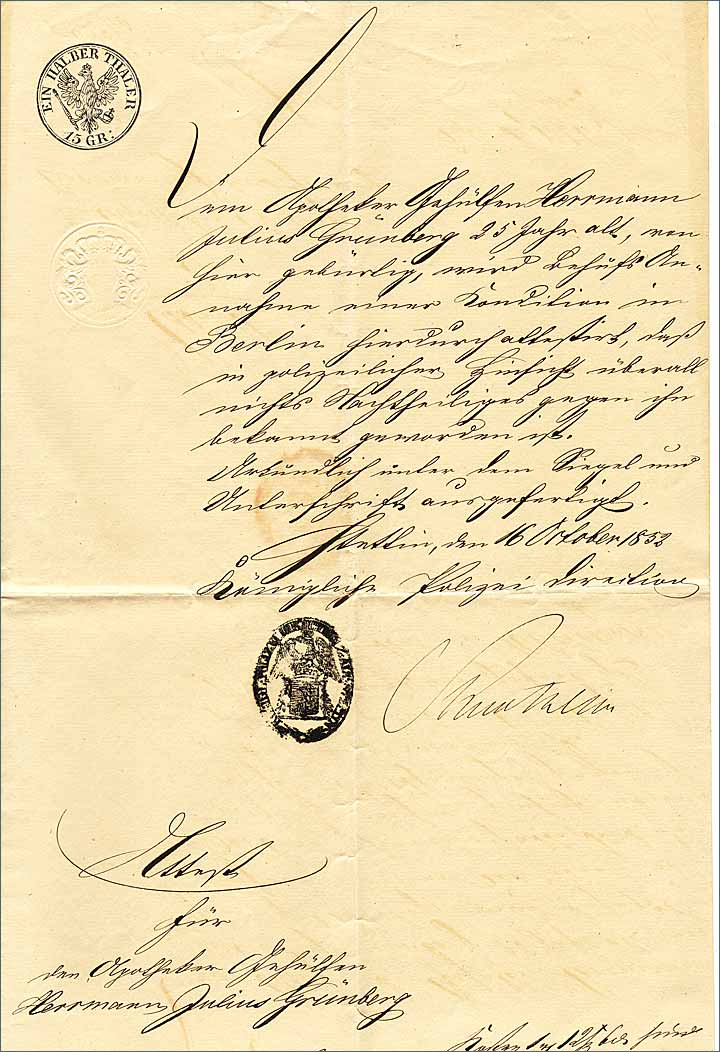 EIN HALBER THALER
15 GR:
Dem Apotheker Gehülfen Herrmann
Julius Grünberg 25 Jahr alt, von
hier gebürtig, wird behufs An-
nahme einer Kondition in
Berlin hierdurch attestirt, daß
in polizeilicher Hinsicht überall
nichts Nachtheiliges gegen ihn
bekannt geworden ist.
Urkundlich unter dem Siegel und
Unterschrift ausgefertigt.
Stettin, den 16 October 1852
Königliche Polizei Direction
Attest
für
den Apotheker Gehülfen
Herrmann Julius Grünberg